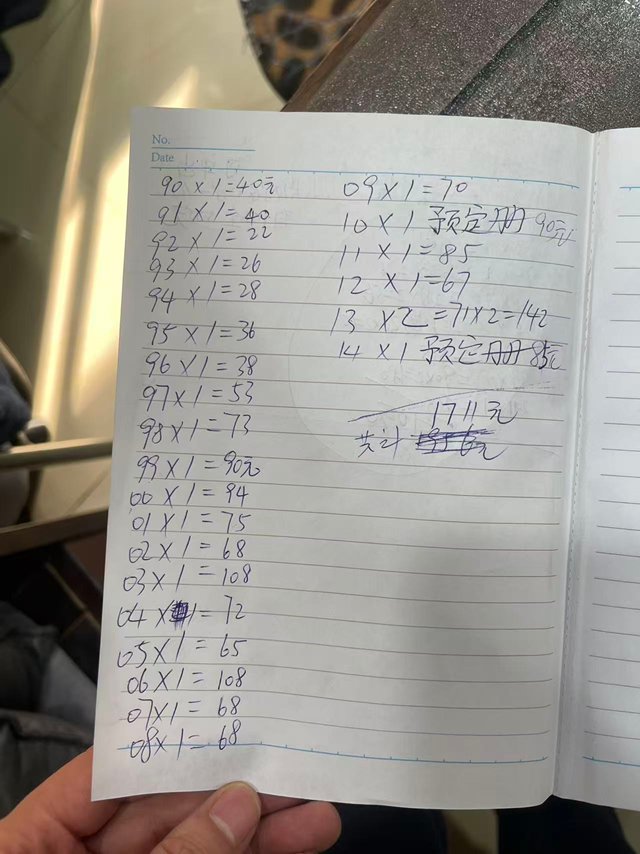 No.
Date
90 × 1 = 40元
91 × 1 = 40
92 × 1 = 22
93 × 1 = 26
94 × 1 = 28
95 × 1 = 36
96 × 1 = 38
97 × 1 = 53
98 × 1 = 73
99 × 1 = 90元
00 × 1 = 94
01 × 1 = 75
02 × 1 = 68
03 × 1 = 108
04 × 1 = 72
05 × 1 = 65
06 × 1 = 108
07 × 1 = 68
08 × 1 = 68
09 × 1 = 70
10 × 1 预定册 90元
11 × 1 = 85
12 × 1 = 67
13 × 2 = 71×2=142
14 × 1 预定册 85元
1711元
共计